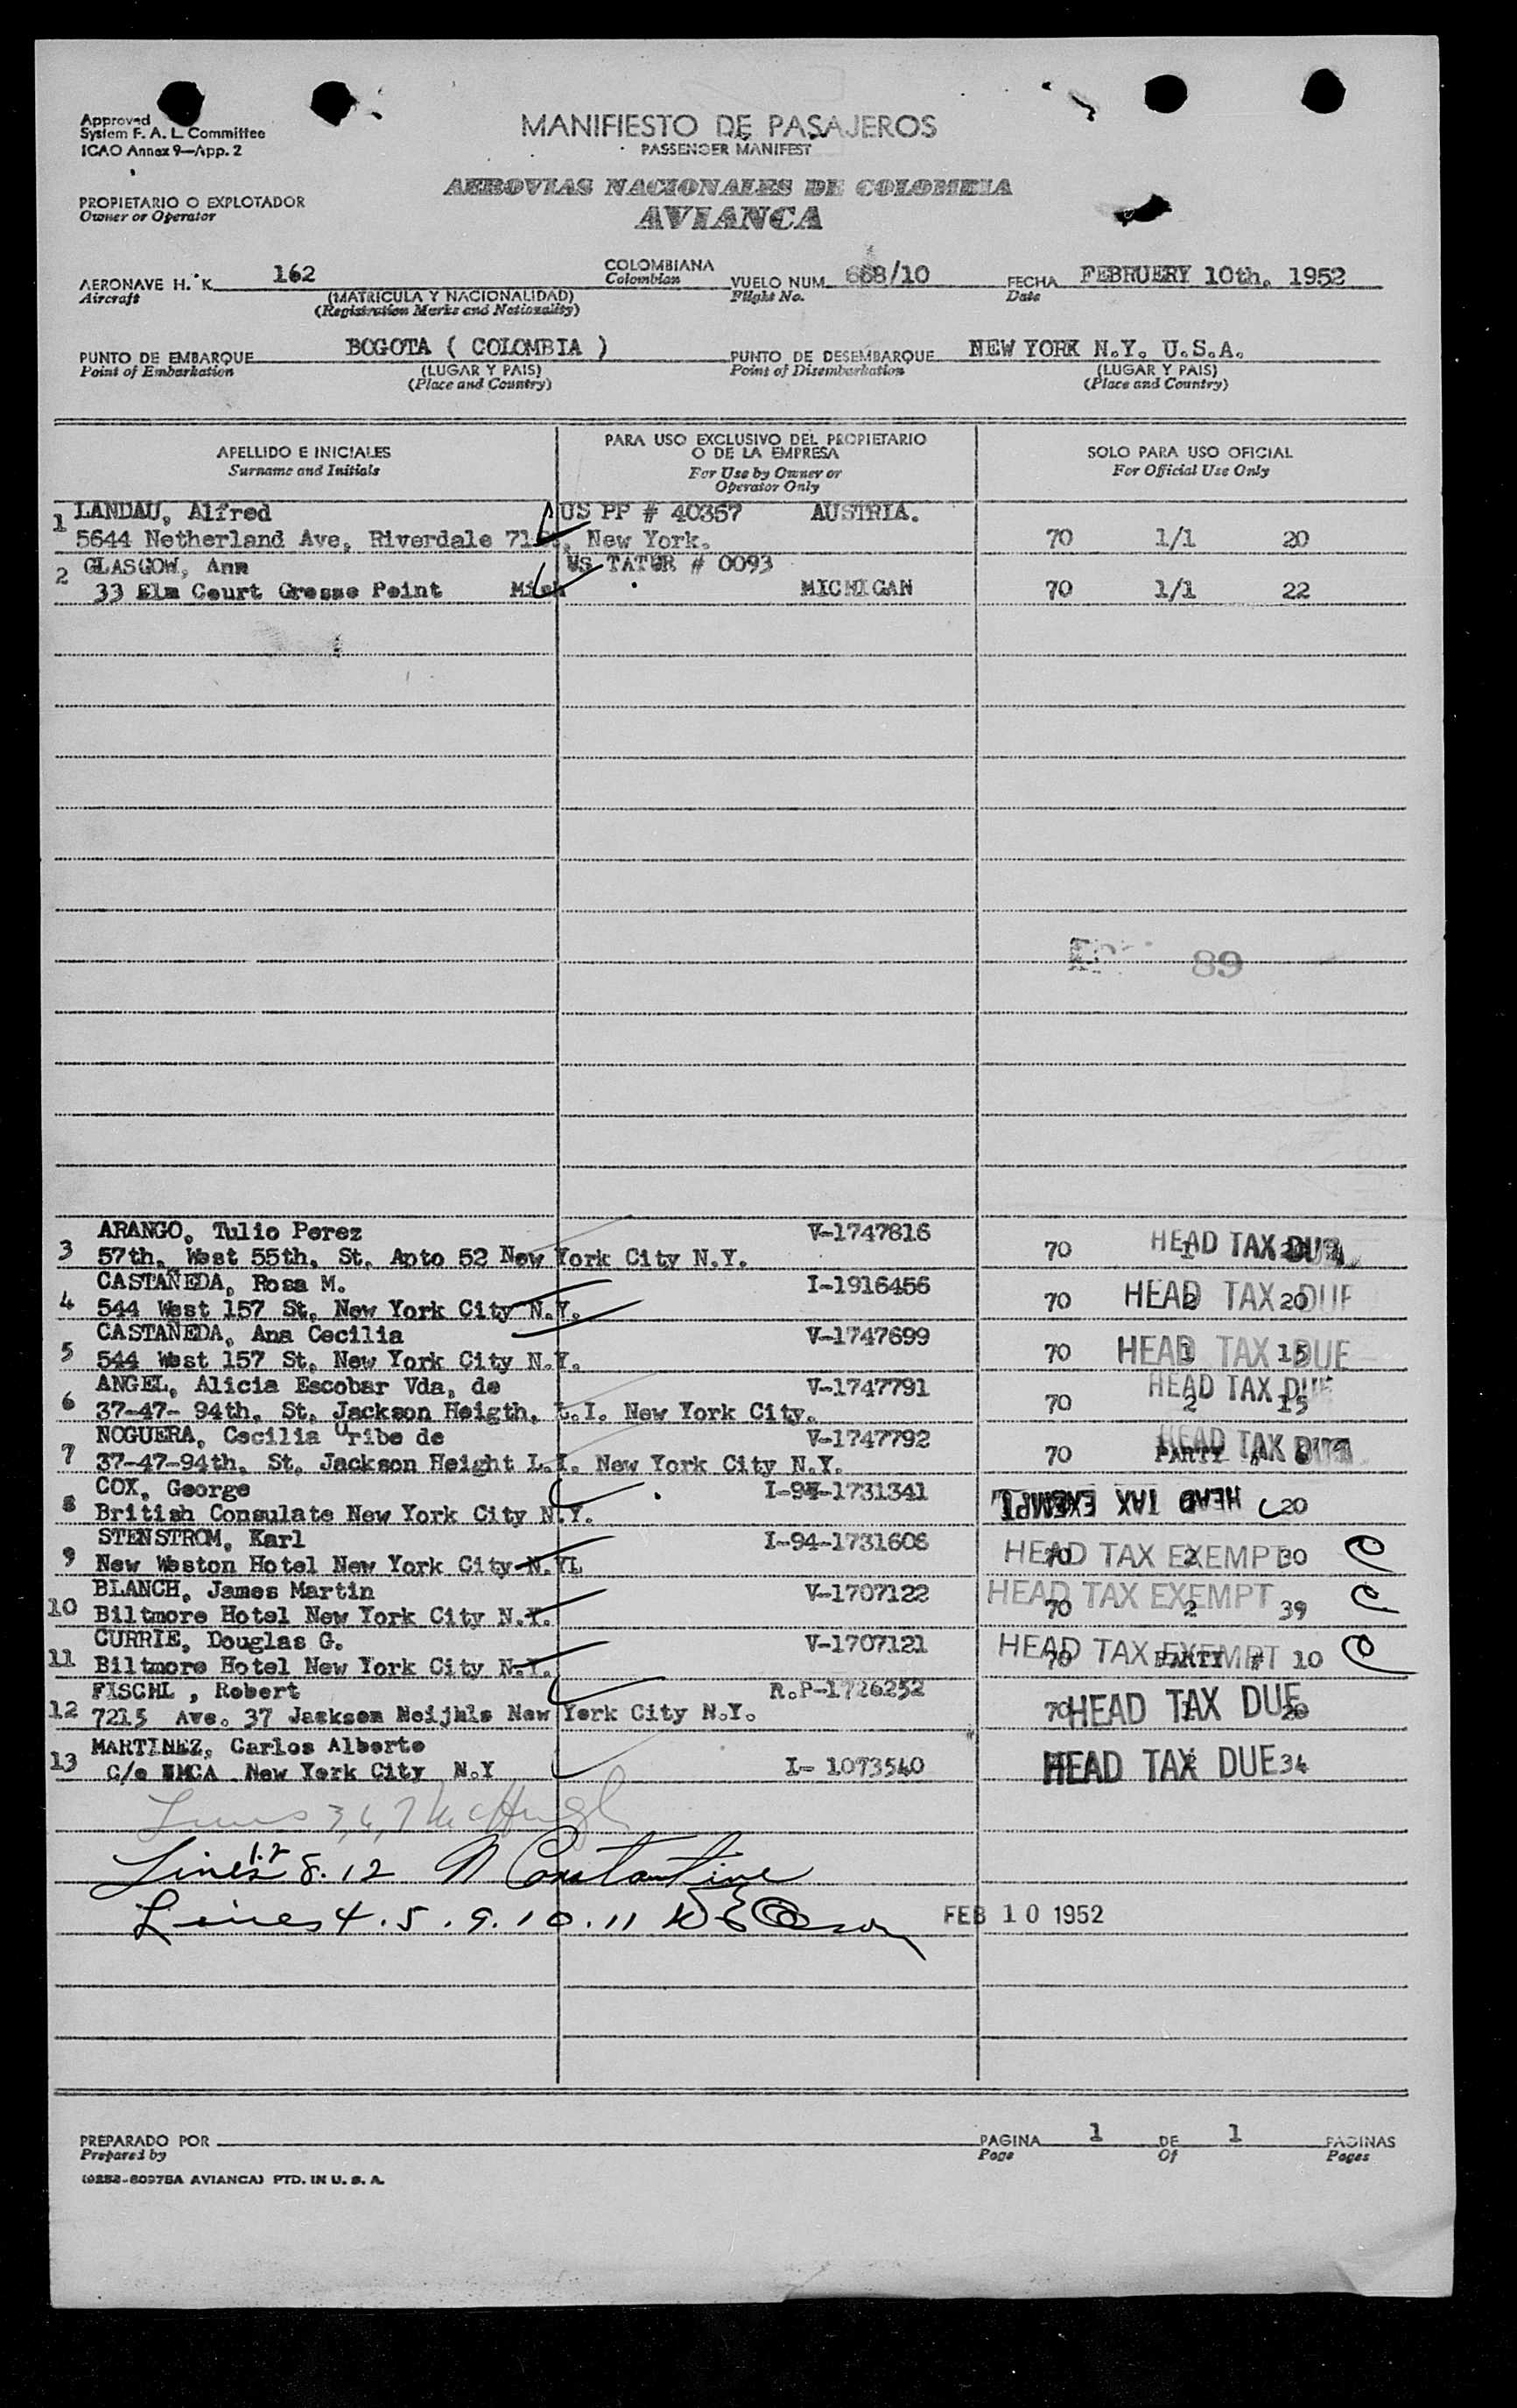 Approved
System F. A. L. Committee
ICAO Annex 9—App. 2
MANIFIESTO DE PASAJEROS
PASSENGER MANIFEST
AEROVIAS NACIONALES DE COLOMBIA
AVIANCA
PROPIETARIO O EXPLOTADOR
Owner or Operator
AERONAVE H. K. 162 COLOMBIANA VUELO NUM. 668/10 FECHA FEBRUERY 10th. 1952
Aircraft (MATRICULA Y NACIONALIDAD) Colombian Flight No. Date
(Registration Marks and Nationality)
PUNTO DE EMBARQUE BOGOTA ( COLOMBIA ) PUNTO DE DESEMBARQUE NEW YORK N.Y. U.S.A.
Point of Embarkation (LUGAR Y PAIS) Point of Disembarkation (LUGAR Y PAIS)
(Place and Country) (Place and Country)
APELLIDO E INICIALES PARA USO EXCLUSIVO DEL PROPIETARIO SOLO PARA USO OFICIAL
Surname and Initials O DE LA EMPRESA For Official Use Only
For Use by Owner or
Operator Only
LANDAU, Alfred US PP # 40367 AUSTRIA.
1 5644 Netherland Ave, Riverdale New York. 70 1/1 20
GLASGOW, Ann US TATUR # 0093
2 33 Elm Court Grosse Point Mich MICHIGAN 70 1/1 22
89
ARANGO, Tulio Perez V-1747816
3 57th, West 55th, St, Apto 52 New York City N.Y. 70 1 HEAD TAX DUE
CASTAÑEDA, Rosa M. I-1916456
4 544 West 157 St, New York City N.Y. 70 2 20 HEAD TAX DUE
CASTAÑEDA, Ana Cecilia V-1747699
5 544 West 157 St, New York City N.Y. 70 1 15 HEAD TAX DUE
ANGEL, Alicia Escobar Vda, de V-1747791
6 37-47- 94th, St, Jackson Heigth, L.I. New York City. 70 2 15 HEAD TAX DUE
NOGUERA, Cecilia Uribe de V-1747792
7 37-47-94th, St, Jackson Height L.I. New York City N.Y. 70 PARTY # 6 HEAD TAX DUE
COX, George I-94-1731341
8 British Consulate New York City N.Y. HEAD TAX EXEMPT 20
STENSTROM, Karl I-94-1731606
9 New Weston Hotel New York City N.Y. 70 2 30 HEAD TAX EXEMPT
BLANCH, James Martin V-1707122
10 Biltmore Hotel New York City N.Y. 70 2 39 HEAD TAX EXEMPT
CURRIE, Douglas G. V-1707121
11 Biltmore Hotel New York City N.Y. 70 PARTY # 10 HEAD TAX EXEMPT
FISCHL , Robert R.P-1726252
12 7215 Ave. 37 Jackson Heijhls New York City N.Y. 70 HEAD TAX DUE
MARTINEZ, Carlos Alberto
13 C/o YMCA New York City N.Y I- 1073540 HEAD TAX DUE 34
Lines 3,6,7 McHugh
Lines 1.2 8. 12 N Constantine
Lines 4 . 5 . 9 . 10 . 11
FEB 10 1952
PREPARADO POR PAGINA 1 DE 1 PAGINAS
Prepared by Page Of Pages
(9252-8097BA AVIANCA) PTD. IN U. S. A.